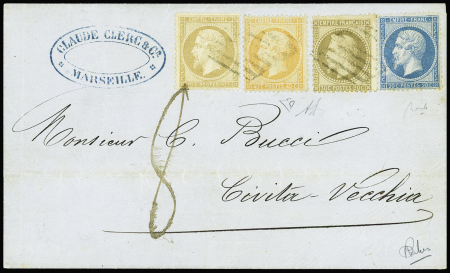 CLAUDE CLERC & Cie
MARSEILLE.
EMPIRE FRANC.
EMPIRE FRANC.
EMPIRE FRANÇAIS
EMPIRE FRANC.
8
Monsieur C. Bucci
Civita-Vecchia